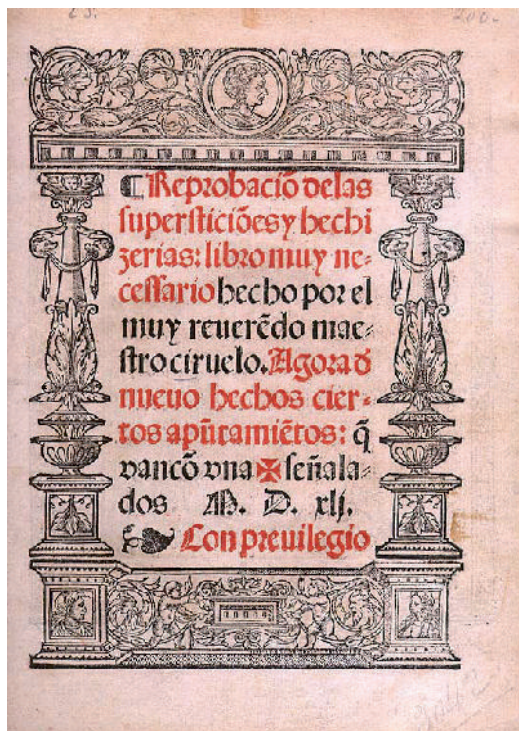 23.
200.
¶ Reprobaciõ delas
supersticiões y hechi
zerias: libro muy ne-
cessario hecho por el
muy reuerẽdo mae-
stro ciruelo. Agora đ
nueuo hechos cier-
tos apũtamiẽtos: q̃
van cõ vna ✠ señala-
dos M. D. xlj.
Con preuilegio